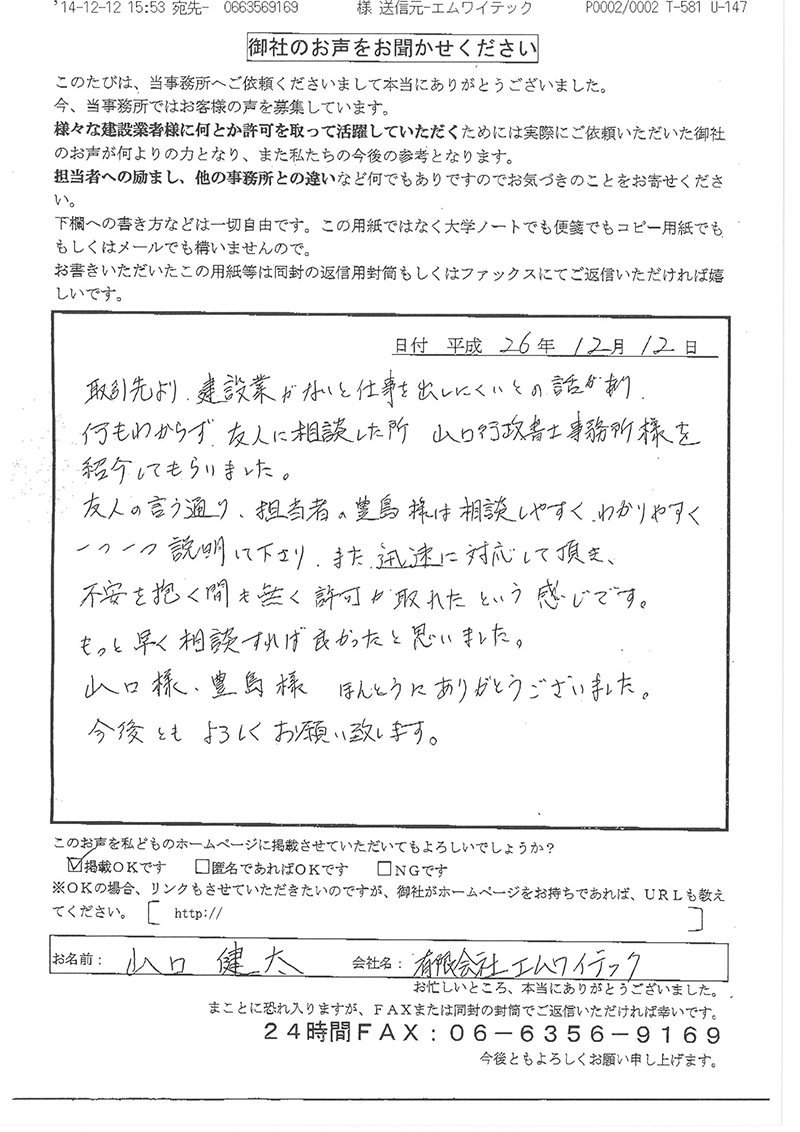 '14-12-12 15:53 宛先- 0663569169 様 送信元-エムワイテック P0002/0002 T-581 U-147
御社のお声をお聞かせください
このたびは、当事務所へご依頼くださいまして本当にありがとうございました。
今、当事務所ではお客様の声を募集しています。
様々な建設業者様に何とか許可を取って活躍していただくためには実際にご依頼いただいた御社
のお声が何よりの力となり、また私たちの今後の参考となります。
担当者への励まし、他の事務所との違いなど何でもありですのでお気づきのことをお寄せくださ
い。
下欄への書き方などは一切自由です。この用紙ではなく大学ノートでも便箋でもコピー用紙でも
もしくはメールでも構いませんので。
お書きいただいたこの用紙等は同封の返信用封筒もしくはファックスにてご返信いただければ嬉
しいです。
日付 平成 26年 12月 12日
取引先より、建設業がないと仕事を出しにくいとの話があり、
何もわからず、友人に相談した所 山口行政書士事務所様を
紹介してもらいました。
友人の言う通り、担当者の豊島様は相談しやすく、わかりやすく
一つ一つ説明して下さり、また、迅速に対応して頂き、
不安を抱く間も無く許可が取れたという感じです。
もっと早く相談すれば良かったと思いました。
山口様、豊島様 ほんとうにありがとうございました。
今後とも よろしくお願い致します。
このお声を私どものホームページに掲載させていただいてもよろしいでしょうか?
☑掲載OKです □匿名であればOKです □NGです
※OKの場合、リンクもさせていただきたいのですが、御社がホームページをお持ちであれば、URLも教え
てください。 [ http:// ]
お名前: 山口 健太 会社名: 有限会社エムワイテック
お忙しいところ、本当にありがとうございました。
まことに恐れ入りますが、FAXまたは同封の封筒でご返信いただければ幸いです。
24時間FAX:06-6356-9169
今後ともよろしくお願い申し上げます。